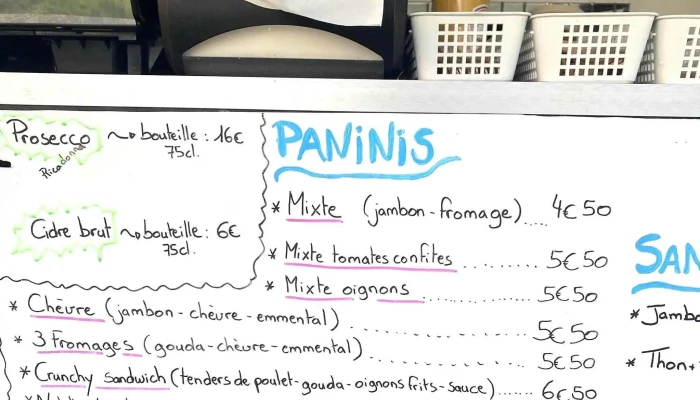 Prosecco ~ bouteille : 16€
Riccadonna 75cl.
Cidre brut ~ bouteille : 6€
75cl.
PANiNiS
* Mixte (jambon - fromage) ..... 4€50
* Mixte tomates confites ......... 5€50
* Mixte oignons .................. 5€50
* Chèvre (jambon - chèvre - emmental) ............ 5€50
* 3 Fromages (gouda - chèvre - emmental) .......... 5€50
* Crunchy sandwich (tenders de poulet - gouda - oignons frits - sauce) ....... 6€50
SAN
* Jambo
* Thon